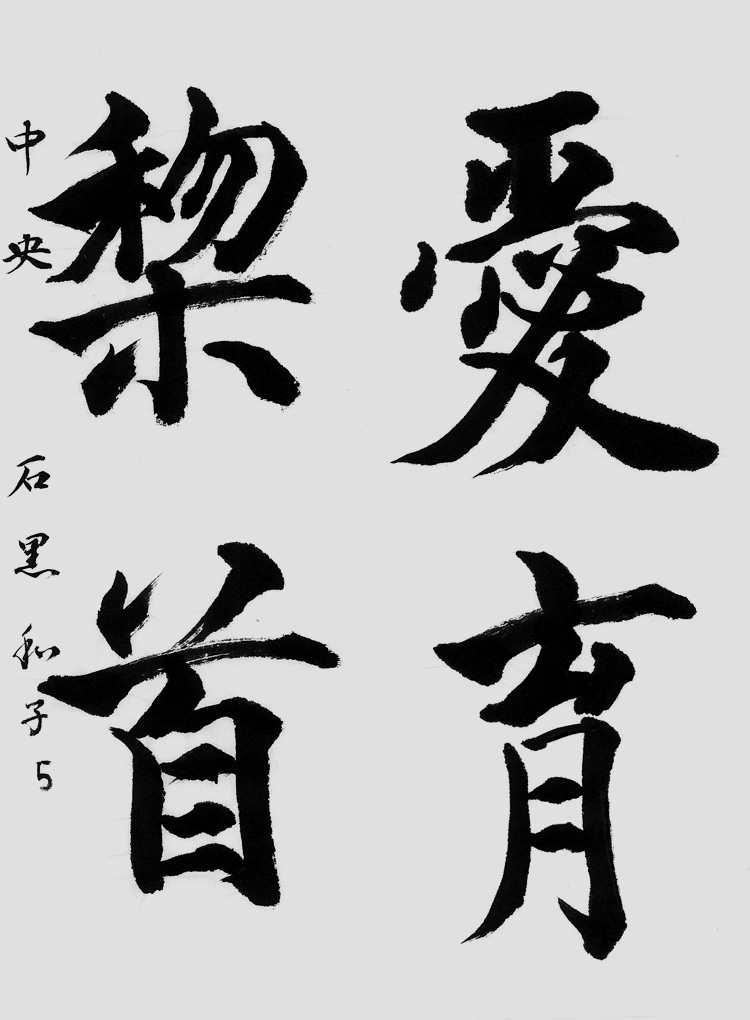 愛育
黎首
中央 石黒和子 5